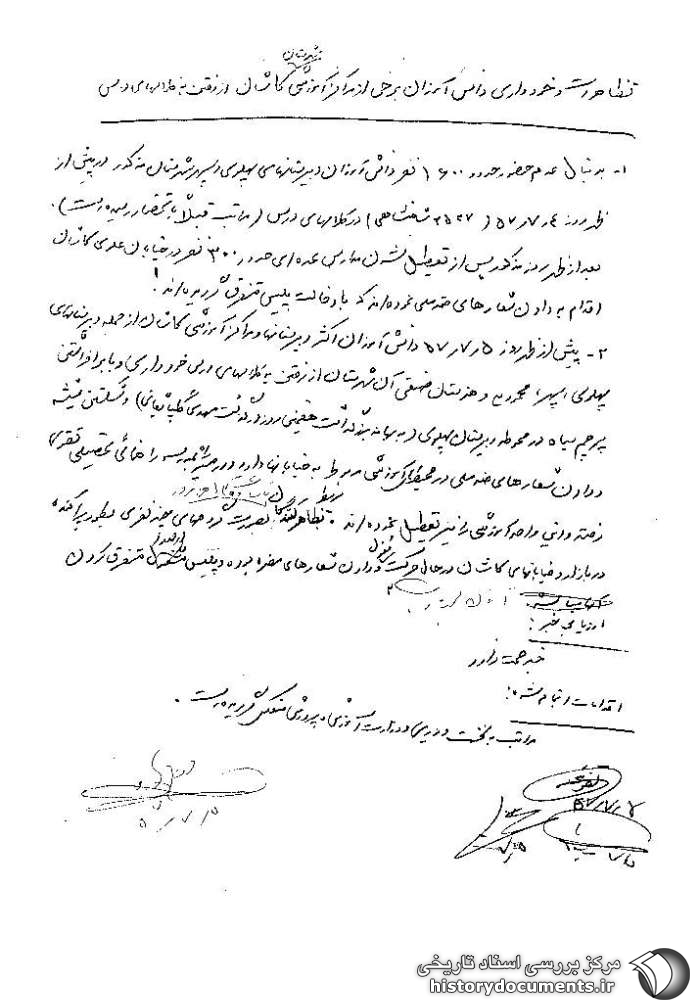 شهرستان
تظاهرات و خودداری دانش آموزان برخی از مراکز آموزشی کاشان از رفتن به کلاسهای درس
۱- بدنبال عدم حضور حدود ۱۶۰۰ نفر دانش آموزان دبیرستانهای پهلوی و سپهر شهرستان مذکور در پیش از
ظهر روز ۵۷/۷/۴ (۲۵۳۷ شاهنشاهی) در کلاسهای درس (مراتب قبلاً باستحضار رسیده است).
بعد از ظهر روز مذکور پس از تعطیل شدن مدارس عده ای حدود ۳۰۰ نفر در خیابان علوی کاشان
اقدام به دادن شعارهای ضد ملی نموده اند که با دخالت پلیس متفرق گردیده اند!
۲- پیش از ظهر روز ۵۷/۷/۵ دانش آموزان اکثر دبیرستانها و مراکز آموزشی کاشان از جمله دبیرستانهای
پهلوی، سپهر، محمودیه و هنرستان صنعتی آن شهرستان از رفتن به کلاسهای درس خودداری و با برافراشتن
پرچم سیاه در محوطه دبیرستان پهلوی (به بهانه بزرگداشت هفتمین روز درگذشت مهدی گلپایگانی) و شکستن شیشه
و دادن شعارهای ضد ملی در محیطهای آموزشی مربوط به خیابانها وارد و در مسیر به مدرسه راهنمائی تحصیلی
رفته و این واحد آموزشی را نیز تعطیل نموده اند. تظاهرکنندگان بصورت گروههای چند نفری بطور پراکنده
در بازار و خیابانهای کاشان در حال حرکت و دادن شعارهای مضره بوده و پلیس متفرق کردن
ارزیابی خبر:
خبر صحت دارد
اقدامات انجام شده:
مراتب به نخست وزیری و وزارت آموزش و پرورش منعکس گردیده است.
۵۷/۷/۵
مرکز بررسی اسناد تاریخی
historydocuments.ir